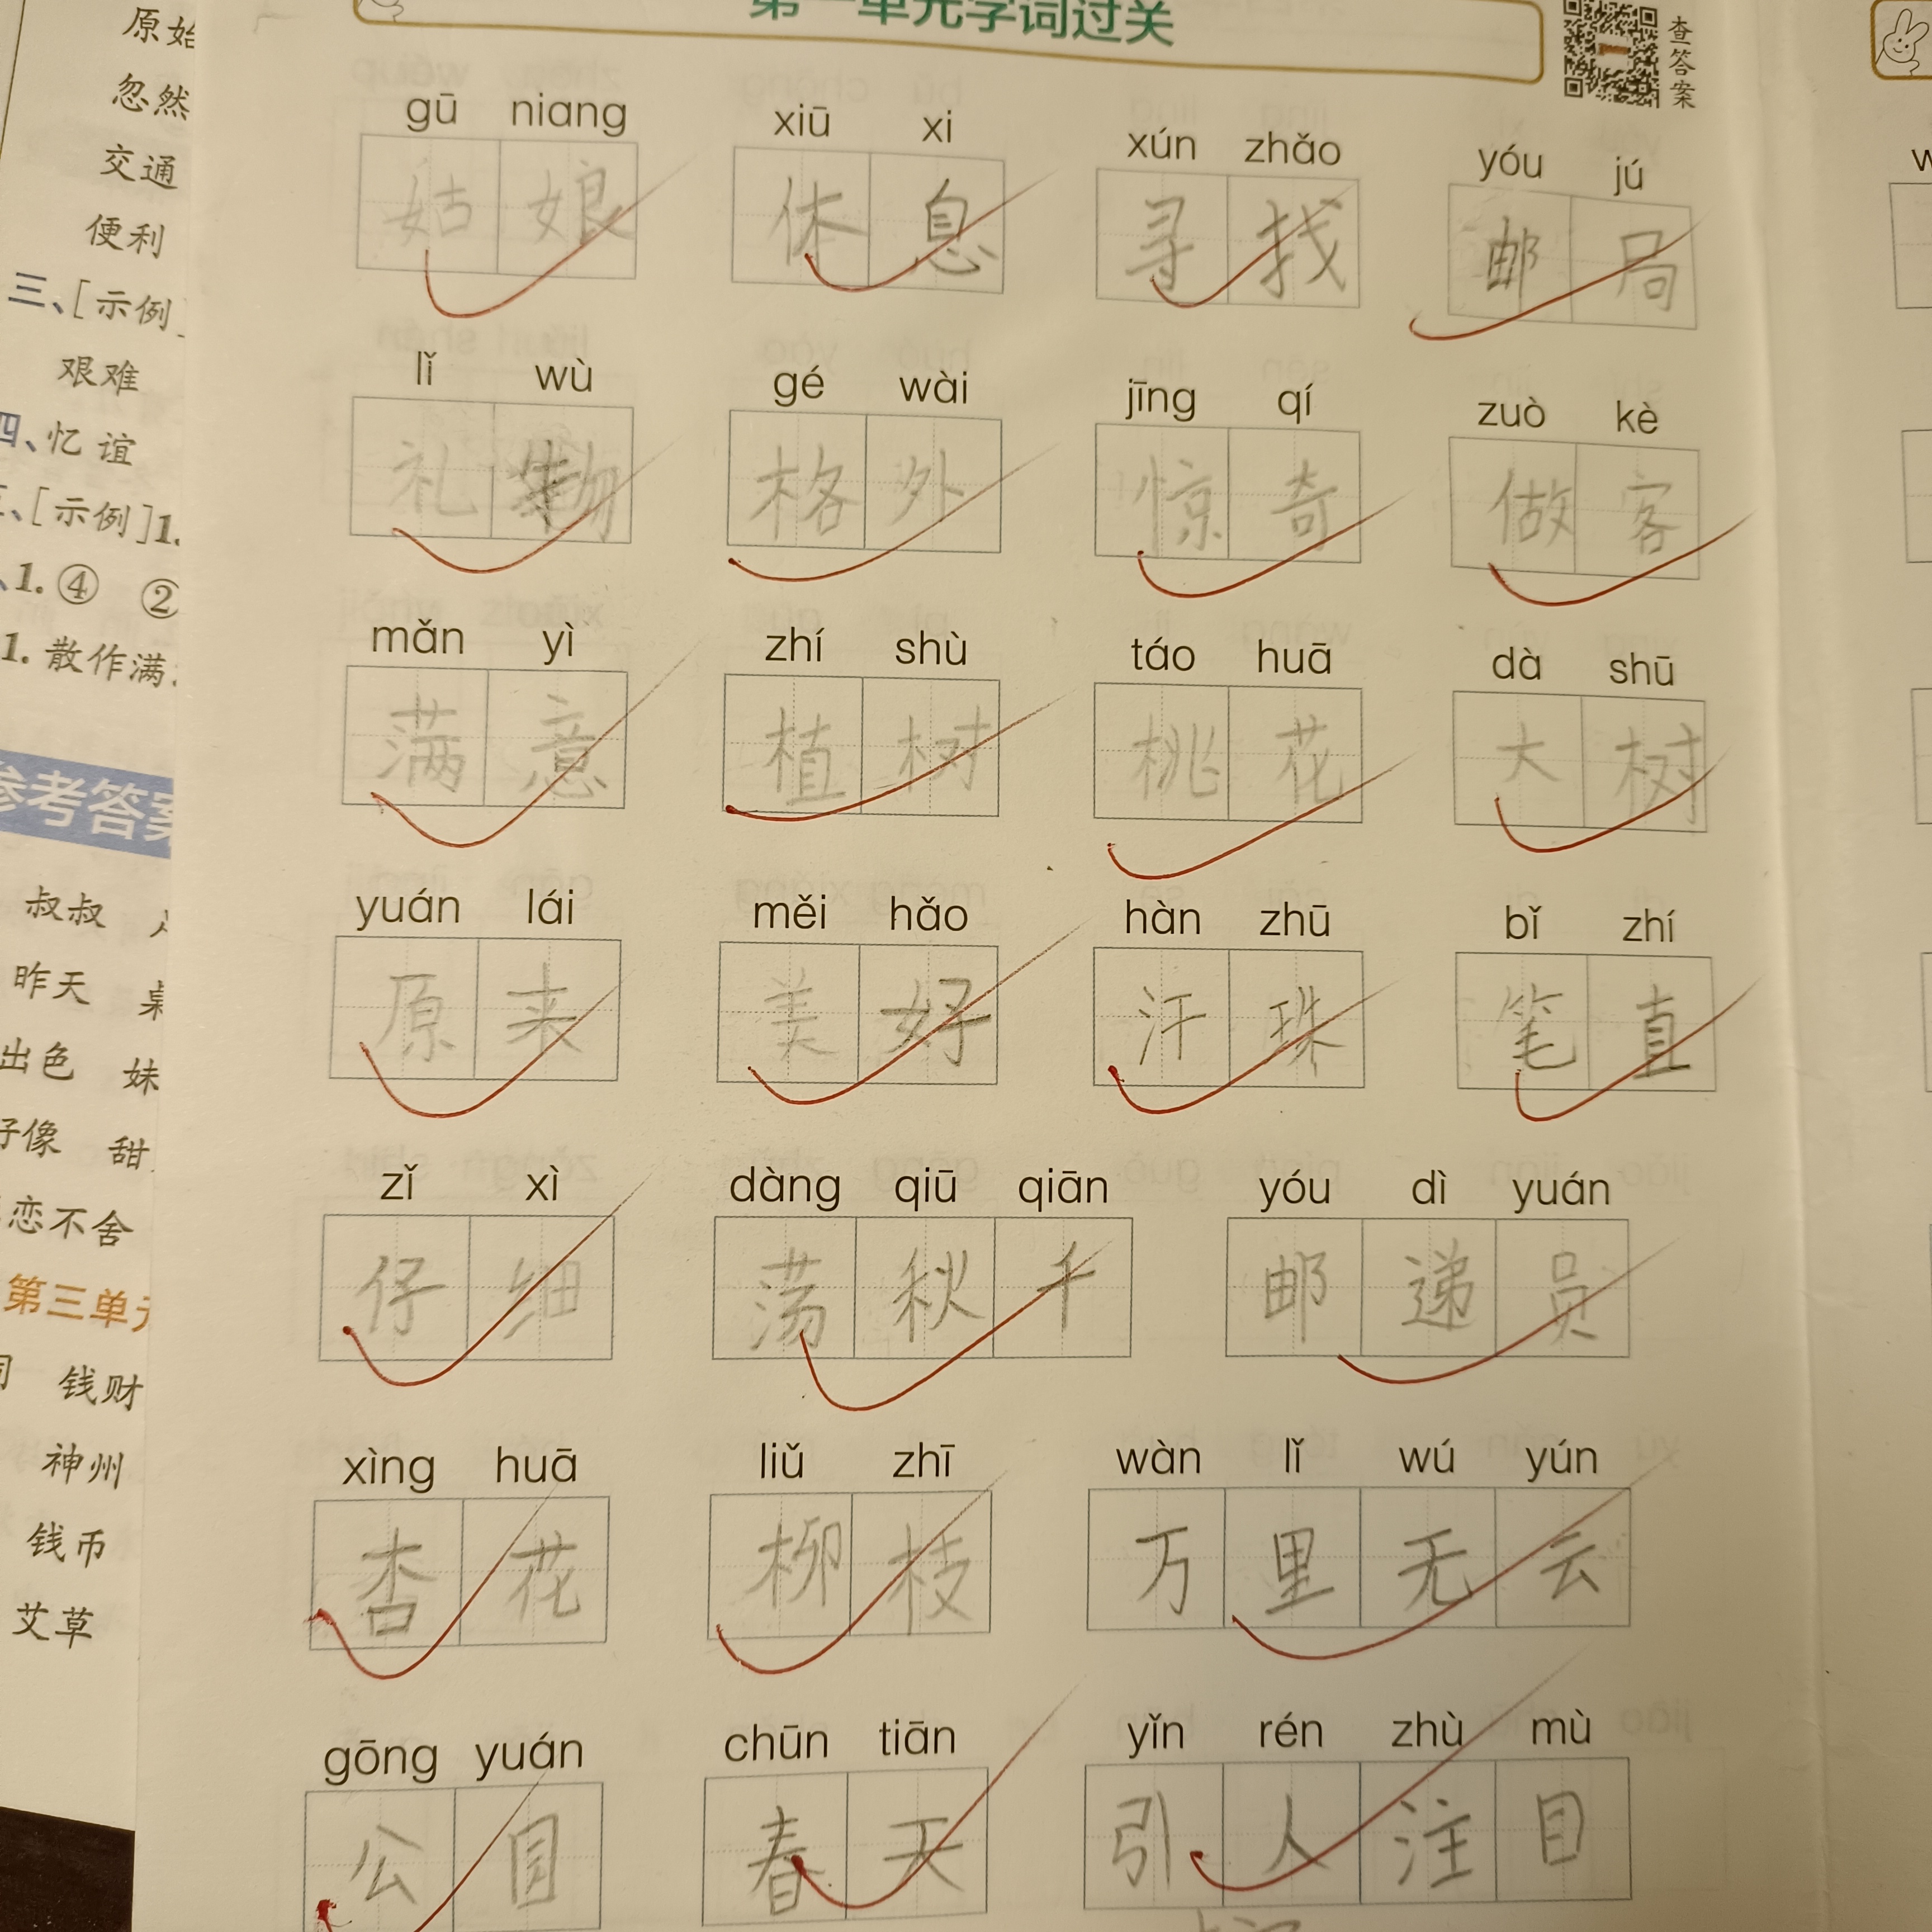 原始
忽然
交通
便利
三、[示例]
艰难
四、忆 谊
、[示例]1.
、1.④ ②
1.散作满
参考答案
叔叔
昨天
出色 妹
好像 甜
恋不舍
第三单元
钱财
神州
钱币
艾草
第一单元字词过关
查答案
gū niang xiū xi xún zhǎo yóu jú
姑娘 休息 寻找 邮局
lǐ wù gé wài jīng qí zuò kè
礼物 格外 惊奇 做客
mǎn yì zhí shù táo huā dà shū
满意 植树 桃花 大树
yuán lái měi hǎo hàn zhū bǐ zhí
原来 美好 汗珠 笔直
zǐ xì dàng qiū qiān yóu dì yuán
仔细 荡秋千 邮递员
xìng huā liǔ zhī wàn lǐ wú yún
杏花 柳枝 万里无云
gōng yuán chūn tiān yǐn rén zhù mù
公 春天 引人注目